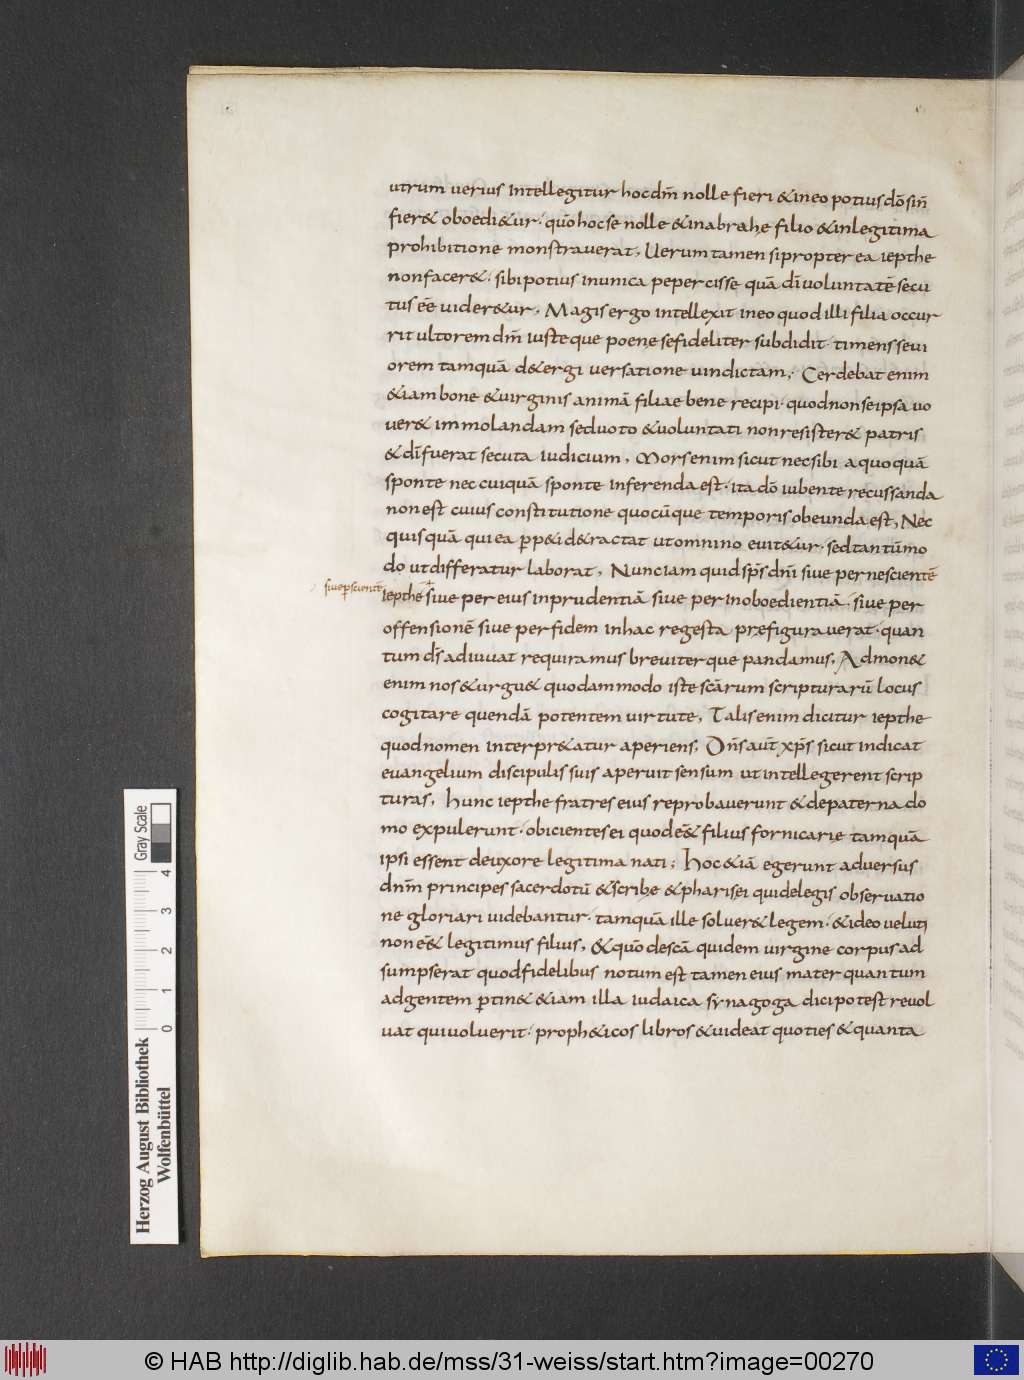 utrum verius intellegitur hoc dm̄ nolle fieri & in eo potius dō sin̄
fier& oboedi&ur · quō hoc se nolle & in abrahę filio & in legitima
prohibitione monstraverat, Uerum tamen si propter ea iepthe
non facer& · sibi potius in unica pepercisse quā dī voluntatē secu
tus eē uider&ur, Magis ergo intellexit in eo quod illi filia occur
rit ultorem dm̄ iusteque poenę se fideliter subdidit · timens sevi
orem tamquā de tergi versatione vindictam; Cerdebat enim
&iam bone & virginis animā filiae bene recipi · quod non se ipsa vo
ver& immolandam sed voto & voluntati non resister& patris
& dī fuerat secuta iudicium, Mors enim sicut nec sibi a quoquā
sponte nec cuiquā sponte inferenda est · ita dō iubente recussanda
non est cuius constitutione quocūque temporis obeunda est, Nec
quisquā qui ea pp&i d&ractat ut omnino evit&ur · sed tantūmo
do ut differatur laborat, Nunc iam quid sps̄ dn̄i siue per nescientē
siue p scientē
iepthē siue per eius inprudentiā siue per inoboedientiā · siue per
offensionē siue per fidem in hac re gesta pręfiguraverat · quan
tum ds̄ adiuvat requiramus breviterque pandamus, Admon&
enim nos & urgu& quodammodo iste scārum scripturarū locus
cogitare quendā potentem virtute, Talis enim dicitur iepthe
quod nomen interpr&atur aperiens, Dn̄s aut̄ xps̄ sicut indicat
euangelium discipulis suis aperuit sensum ut intellegerent scrip
turas, Hunc iepthe fratres eius reprobaverunt & de paterna do
mo expulerunt · obicientes ei quod eēt filius fornicarię tamquā
ipsi essent de uxore legitima nati; Hoc &iā egerunt adversus
dn̄m principes sacerdotū & scribę & pharisęi qui de legis observatio
ne gloriari videbantur · tamquā ille solver& legem · & ideo veluti
non eēt legitimus filius, & quō de scā quidem virgine corpus ad
sumpserat quod fidelibus notum est tamen eius mater quantum
ad gentem ptin& &iam illa iudaica synagoga dici potest revol
vat qui voluerit · proph&icos libros & videat quoties & quanta
Herzog August Bibliothek
Wolfenbüttel
0 1 2 3 4
Gray Scale
© HAB http://diglib.hab.de/mss/31-weiss/start.htm?image=00270